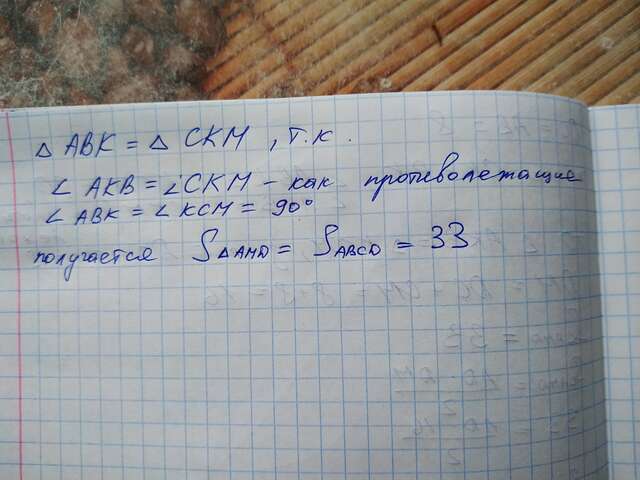 △ ABK = △ CKM, т.к.
∠ AKB = ∠ CKM - как противолежащие
∠ ABK = ∠ KCM = 90°
получается S△AMD = SABCD = 33